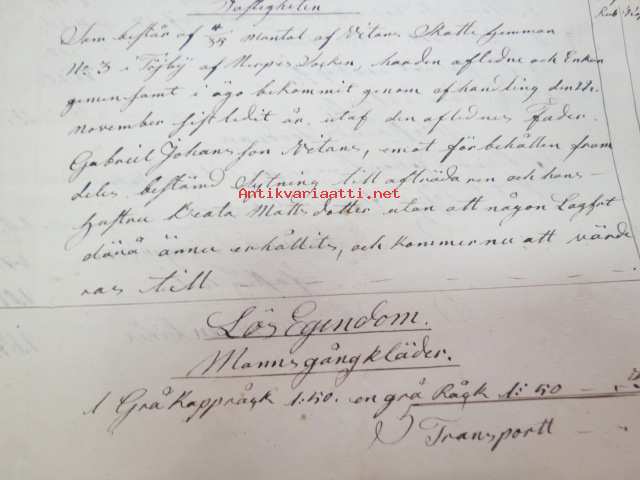 Fastigheten
Rub
Som består af 4/35 mantal af Nitans Skatte hemman
No 3 i Töjby af Nerpes Socken, hvarden aflidne och Enkan
gemensamt i ägo bekommit genom afhandling den 22
November sistledit år utaf den aflidnes Fader.
Gabriel Johansson Nitans, emot förbehållen fram
deles bestämd Sytning till afträdaren och hans
Hustru Beata Mattsdotter utan att någon Lagfrt
därå ännu erhållits, och kommer nu att värde
ras till
Antikvariaatti.net
Lös Egendom.
Mannsgångkläder.
1 Grå Kappråçk 1:50. en grå Råçk 1:50
Transportt